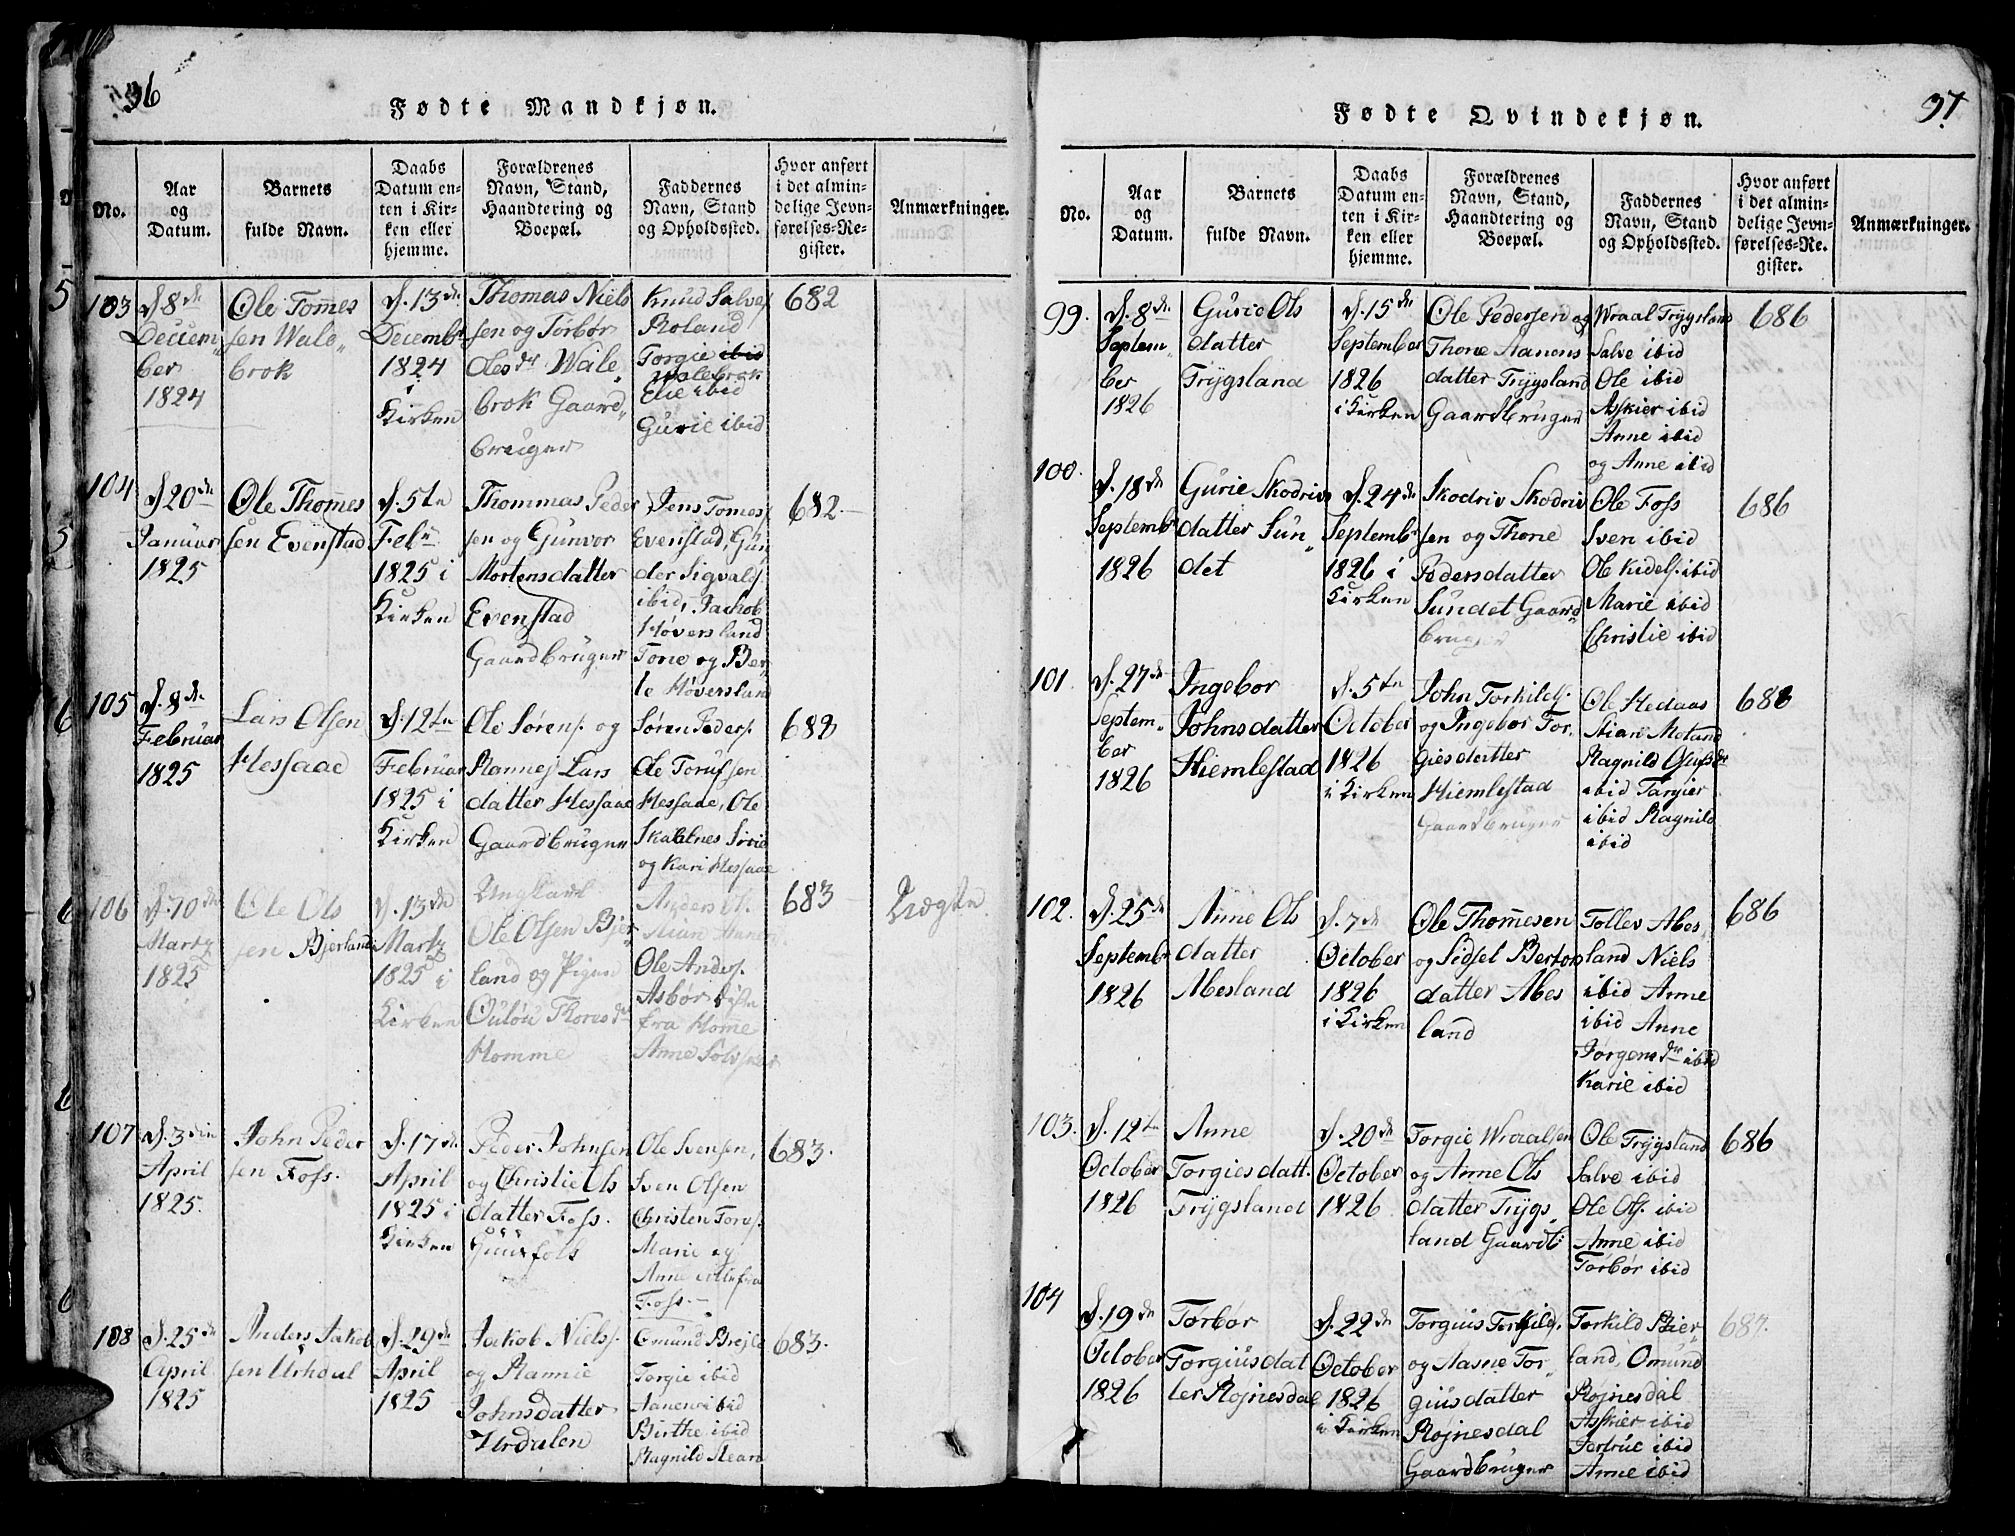 96
Fødte Mandkjøn.
No.
Aar
og
Datum.
Barnets
fulde Navn.
Daabs
Datum en-
ten i Kir-
ken eller
hjemme.
Forældrenes
Navn, Stand,
Haandtering og
Boepæl.
Faddernes
Navn, Stand
og Opholdssted.
Hvor anført
i det almin-
delige Jevn-
førelses-Re-
gister.
Anmærkninger.
103
D. 8de
Decem„
ber
1824
Ole Tom̅es
sen Wale„
brok
D. 13de
Decembr
1824
i
Kirken
Thomas Niels
sen og Torbør
Olesdr Wale„
brok Gaard„
bruger
Knud Salves
Roland
Torgie ibid
Walebrok
Elie ibid
Gurie ibid
682
104
D. 20de
Januar
1825
Ole Thom̅es
sen Evenstad
D. 5te
Febr
1825 i
Kirken
Thommas Peder
sen og Gunvor
Mortensdatter
Evenstad
Gaardbruger
Jens Tomes
Evenstad, Gun
der Sigvals.
ibid, Jachob
Høversland
Tone og Ber„
te Høversland
682
105
D. 8de
Februar
1825
Lars Olsen
Hessaae
D. 12te
Februar
1825 i
Kirken
Ole Sørens. og
Rannej Lars
datter Hessaae
Gaardbruger
Søren Peders.
Ole Torufssen
Hessaae, Ole
Skaalnes Sirie
og Kari Hessaae
682
106
D. 10de
Marty
1825
Ole Ols
sen Bjerland
D. 13de
Marty
1825 i
Kirken
Ungkarl
Ole Olsen Bjer„
land og Pigen
Thoresdr
Homme
Anders Ols.
Ole Anders.
Asbør
fra Hom̅e
Anne
683
Uægte
107
D. 3die
April
1825.
John Peder
sen Foss.
D. 17de
April
1825 i
Kirken
Peder Johnsen
og Christie Ols
datter Foss.
Ole Svensen,
Sven Olsen
Christen Tores.
Marie og
Anne alle fra
Foss.
683.
108
D. 25de
April
1825
Anders Jakob
sen Urhdal
D. 29de
April
1825
Jakob Niels.
og Rannie
Johnsdatter
Urdalen
Omund Brejle
Torgie ibid
Aanen ibid
Birthe ibid
Ragnild
683.
97.
Fødte Qvindekjøn.
No.
Aar
og
Datum.
Barnets
fulde Navn.
Daabs
Datum en-
ten i Kir-
ken eller
hjemme.
Forældrenes
Navn, Stand,
Haandtering og
Boepæl.
Faddernes
Navn, Stand
og Opholdssted.
Hvor anført
i det almin-
delige Jevn-
førelses-Re-
gister.
Anmærkninger.
99.
D. 8de
Septem„
ber
1826
Gurie Ols
datter
Trÿgsland
D. 15de
September
1826
i Kirken
Ole Pedersen og
Thone Aanons
datter Trÿgsland
Gaardbruger
Wraal Trÿgsland
Salve ibid
Ole ibid
Asskier ibid
Anne ibid
og Anne ibid
686
100.
D. 18de
Septembr
1826
Gurie Skodrivs
datter Sun„
det
D. 24de
Septembr
1826 i
Kirken
Skodriv Skodriv
sen og Thone
Pedersdatter
Sundet Gaard„
bruger
Ole Foss
Sven ibid
Ole Kidels. ibid
Marie ibid
Christie ibid
686
101.
D. 27de
Septem„
ber
1826
Ingebor
Johnsdatter
Hiemlestad
D. 5te
October
1826
i Kirken
John Torkilds.
og Ingebor Tor„
giesdatter
Hiemlestad
Gaardbruger
Ole Hedaas
Stian Moland
Ragnild Olufsdr
ibid Targier
ibid Ragnild
ibid
686
102.
D. 25de
Septembr
1826
Anne Ols
datter
Abesland
D. 7de
October
1826
i Kirken
Ole Thom̅esen
og Sidsel Bertors
datter Abes
land
Tollev Abes„
land Niels
ibid Anne
ibid Anne
Jørgensdr ibid
Karie ibid
686
103.
D. 12te
October
1826
Anne
Torgiesdatt.
Trÿgsland
D. 20de
October
1826
Torgie Wraalsen
og Anne Ols
datter Trÿgs„
land Gaardb:
Ole Trÿgsland
Salve ibid
Ole Ols. ibid
Anne ibid
Torbør ibid
686
104
D. 19de
October
1826
Torbør
Torgiusdat
ter Røjnesdal
D. 22de
October
1826
i Kirken
Torgius Torkilds.
og Aasne Tor„
giusdatter
Røjnesdal
Gaardbruger
Torkild Bier„
land, Omund
Røjnesdal
Asskier ibid
Jertrue ibid
Anne ibid
687.